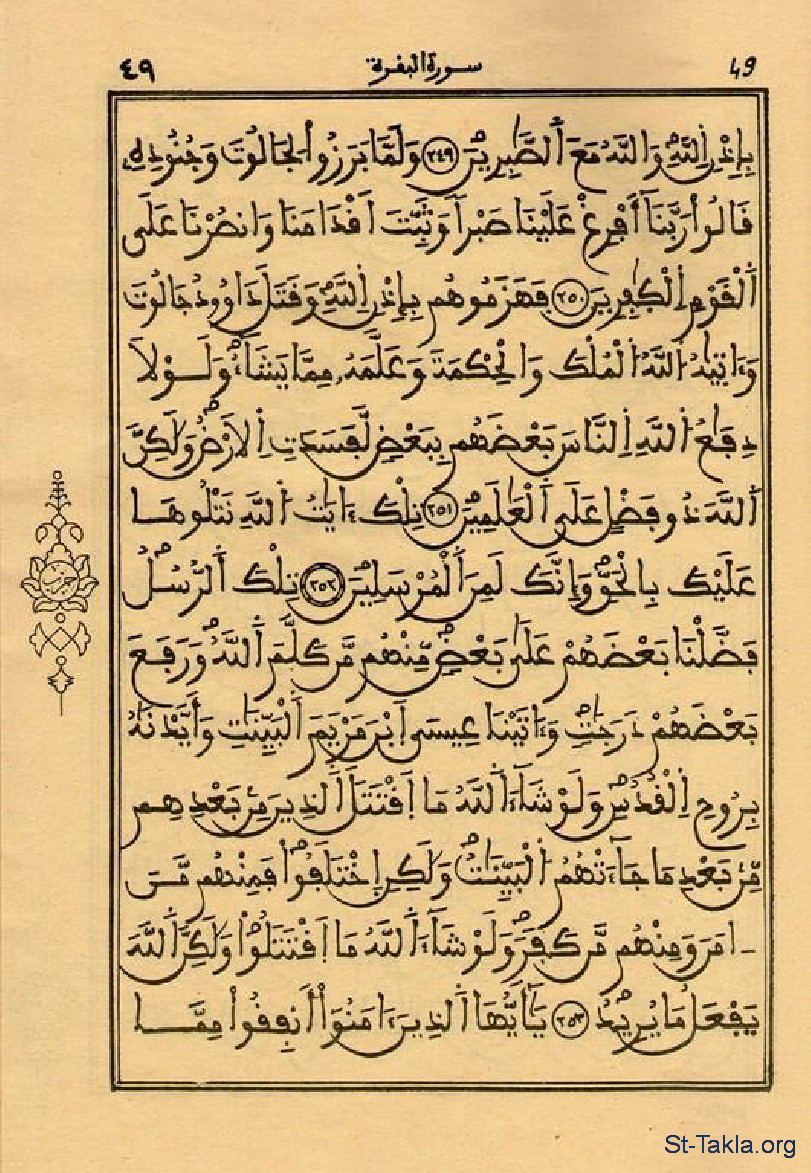 ٤٩ سورة البقرة 49
بِإِذْنِ اِللَّهِ وَاللَّهُ مَعَ اَلصَّٰبِرِينَ ٢٤٩ وَلَمَّا بَرَزُواْ لِجَالُوتَ وَجُنُودِهِۦ
قَالُواْ رَبَّنَآ أَفْرِغْ عَلَيْنَا صَبْراً وَثَبِّتَ اَقْدَامَنَا وَانصُرْنَا عَلَى
اَلْقَوْمِ اِلْكٰفِرِينَ ٢٥٠ فَهَزَمُوهُم بِإِذْنِ اِللَّهِ وَقَتَلَ دَاوُودُ جَالُوتَ
وَءَاتٰىهُ اُللَّهُ اُلْمُلْكَ وَالْحِكْمَةَ وَعَلَّمَهُۥ مِمَّا يَشَآءُ وَلَوْلاَ
دِفَٰعُ اُللَّهِ اِلنَّاسَ بَعْضَهُم بِبَعْضٍ لَّفَسَدَتِ اِلاَرْضُ وَلَٰكِنَّ
اَللَّهَ ذُو فَضْلٍ عَلَى اَلْعَٰلَمِينَ ٢٥١ تِلْكَ ءَايَٰتُ اُللَّهِ نَتْلُوهَا
عَلَيْكَ بِالْحَقِّ وَإِنَّكَ لَمِنَ اَلْمُرْسَلِينَ ٢٥٢ تِلْكَ اَلرُّسُلُ
فَضَّلْنَا بَعْضَهُمْ عَلَىٰ بَعْضٍ مِّنْهُم مَّن كَلَّمَ اَللَّهُ وَرَفَعَ
بَعْضَهُمْ دَرَجَٰتٍ وَءَاتَيْنَا عِيسَى اَبْنَ مَرْيَمَ اَلْبَيِّنَٰتِ وَأَيَّدْنَٰهُ
بِرُوحِ اِلْقُدُسِ وَلَوْ شَآءَ اَللَّهُ مَا اَقْتَتَلَ اَلذِينَ مِنۢ بَعْدِهِم
مِّنۢ بَعْدِ مَا جَآءَتْهُمُ اُلْبَيِّنَٰتُ وَلَٰكِنِ اِخْتَلَفُواْ فَمِنْهُم مَّنَ
ـ امَنَ وَمِنْهُم مَّن كَفَرَ وَلَوْ شَآءَ اَللَّهُ مَا اَقْتَتَلُواْ وَلَٰكِنَّ اَللَّهَ
يَفْعَلُ مَا يُرِيدُ ٢٥٣ يَٰٓأَيُّهَا اَلذِينَ ءَامَنُوٓاْ أَنفِقُواْ مِمَّا
حزب
St-Takla.org